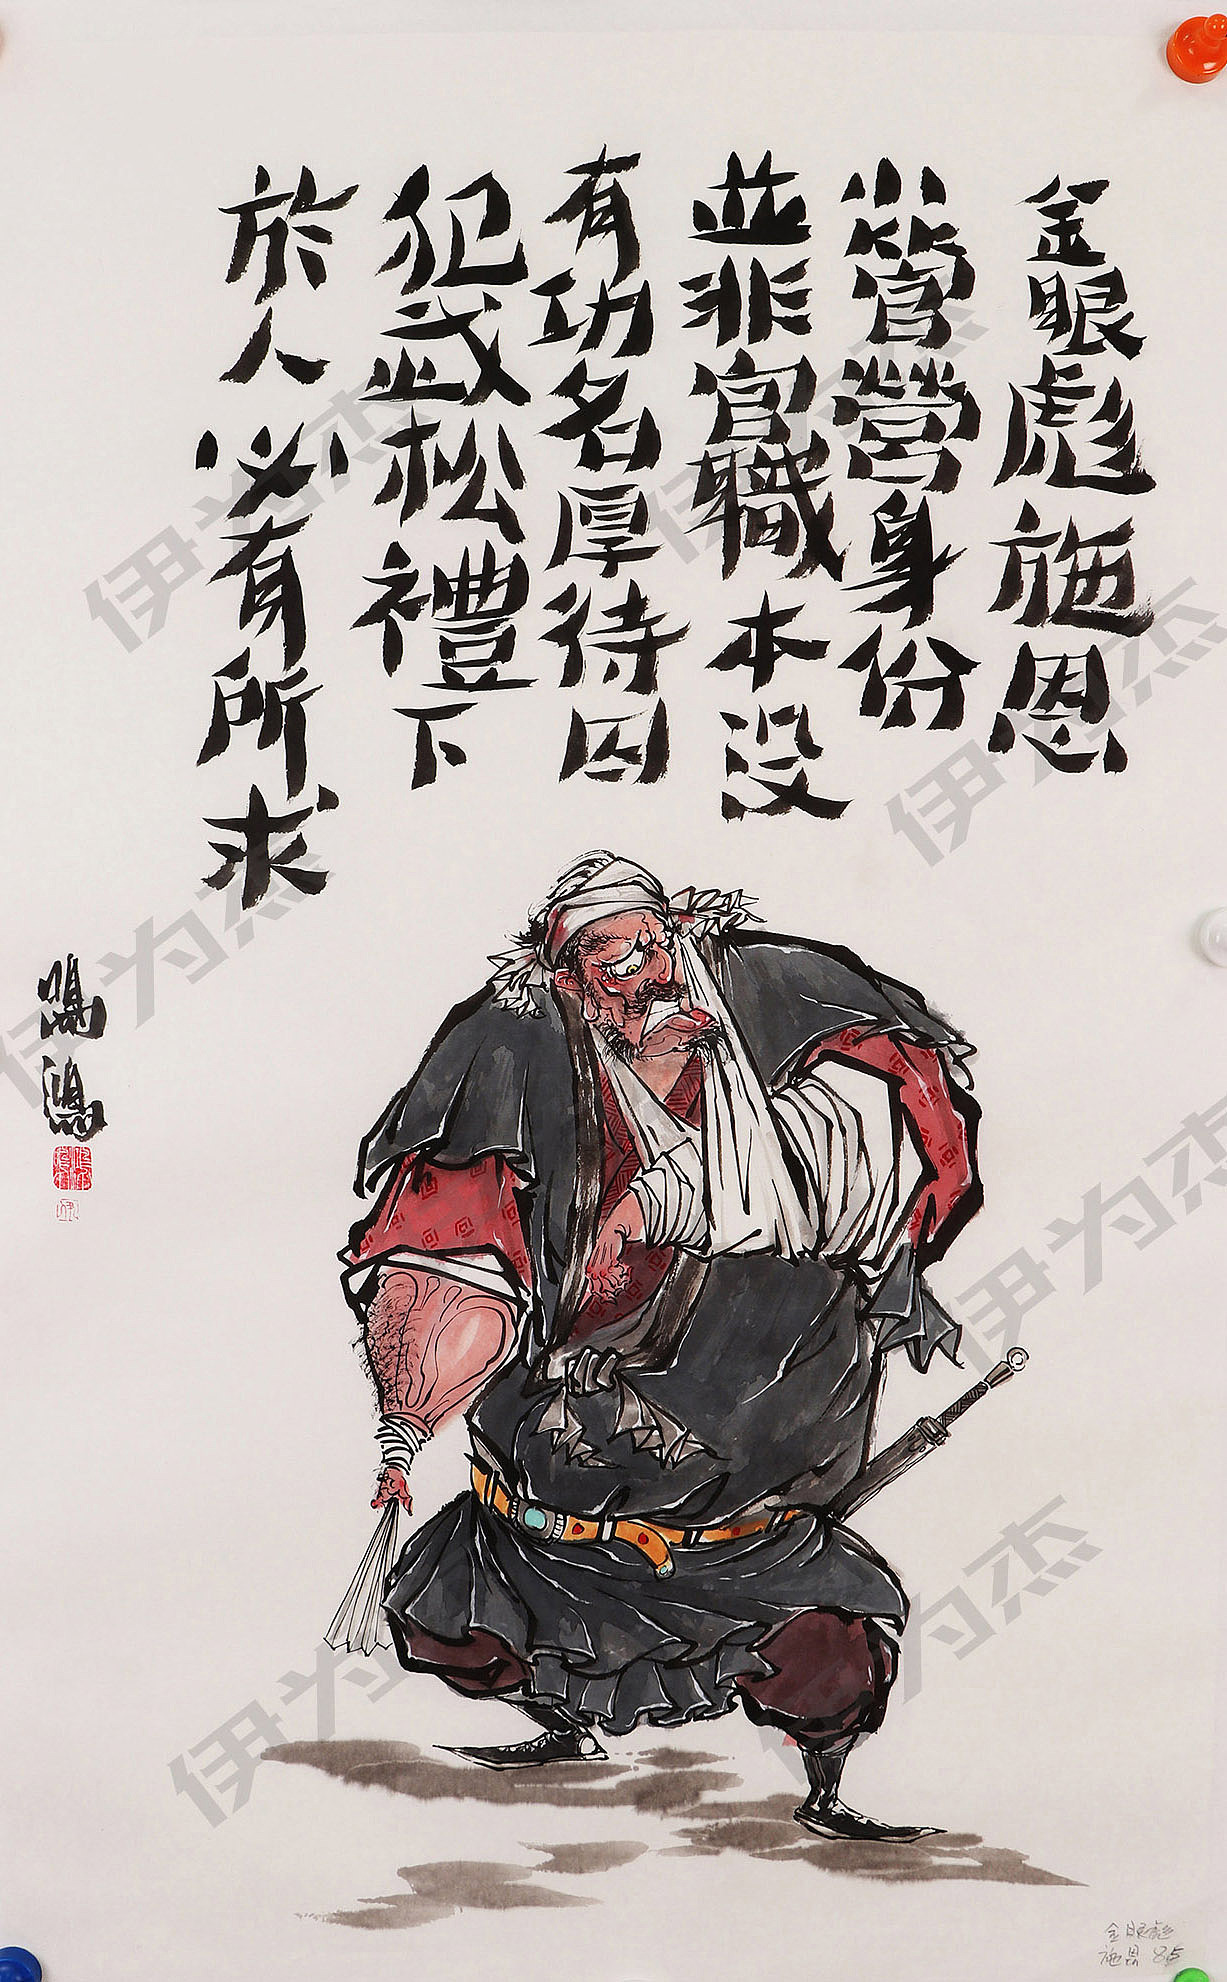 金眼彪施恩
小管營身份
並非官職本没
有功名厚待囚
犯武松禮下
於人必有所求
金眼彪
施恩 85
伊为杰
伊为杰
伊为杰
伊为杰
伊为杰
伊为杰
伊为杰